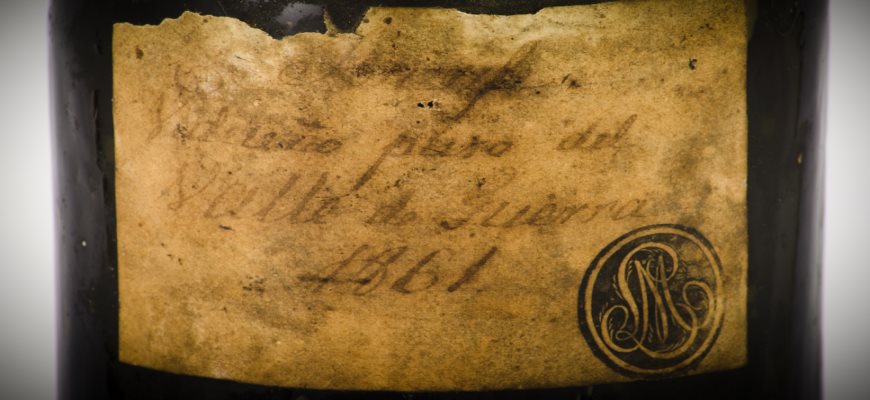 Vidueño puro del
Valle de Guerra
1861